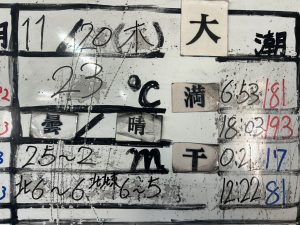 月 11/20(木) 大 潮
2 23 ℃ 満 6:53 181
3 曇/晴 18:03 193
3 25~2 m 干 0:21 17
3 北6~6 北東6~5 12:22 81